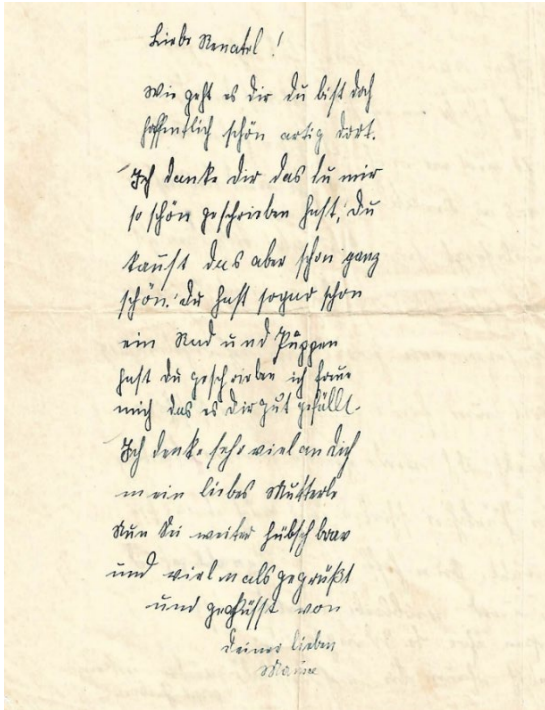 Liebe Renatel!
Wie geht es dir du bist doch
hoffentlich schön artig dort.
Ich danke dir das du mir
so schön geschrieben hast, du
kannst das aber schon ganz
schön. Du hast sogar schon
ein Rad und Puppen
hast du geschrieben ich freue
mich das es dir gut gefällt.
Ich denke sehr viel an dich
mein liebes Mutterle
Nun sei weiter hübsch brav
und vielmals gegrüßt
und geküsst von
deiner lieben